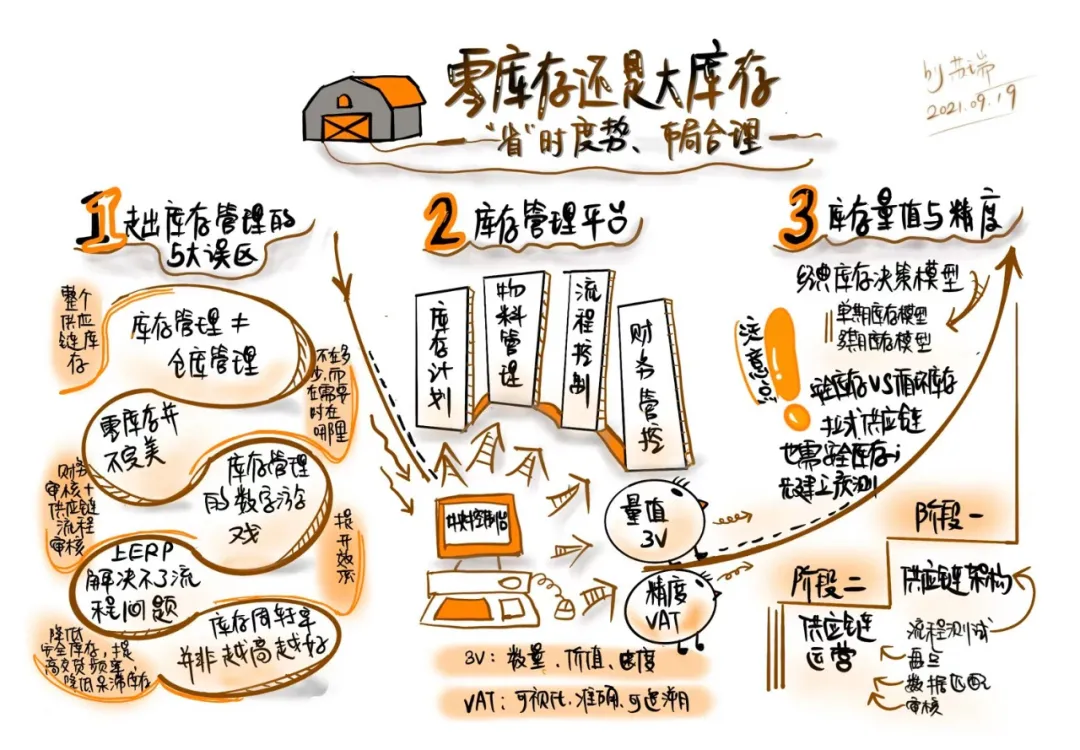 零库存还是大库存
“省”时度势、布局合理
by 苏瑞
2021.09.19
1 走出库存管理的
5大误区
整个
供应
链库
存
库存管理≠
仓库管理
不在多
少,而
在需要
时在
哪里
零库存并
不完美
财务
审核+
供应链
流程
审核
库存管理
的数字游
戏
上ERP
解决不了流
程问题
提
开
效
库存周转率
并非越高越好
降低
安全库存,提
高交货频率
降低呆滞库存
2 库存管理平台
库存计划
物料管理
流程控制
财务管控
中央控制台
量值
3V
精度
VAT
3V:数量、价值、速度
VAT:可视化、准确、可追溯
3 库存量值与精度
经典库存决策模型
单期库存模型
多期库存模型
注意!
安全库存VS循环库存
拉式供应链
也需安全库存
先建立预测
阶段一
供应链架构
流程测试
盘点
数据匹配
审核
阶段二
供应链
运营